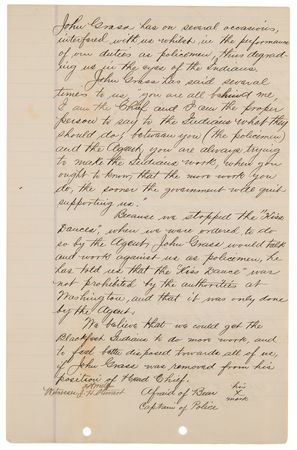 John Grass has on several occasions,
interfered with us whilst in the performance
of our duties as policemen, thus degrad-
ing us in the eyes of the Indians.
John Grass has said several
times to us, "you are all behind me,
I am the Chief and I am the proper
person to say to the Indians what they
should do; between you (the policemen)
and the Agent, you are always trying
to make the Indians work, when you
ought to know, that the more work you
do, the sooner the government will quit
supporting us."
Because we stopped the "Kiss
Dances", when we were ordered to do
so by the Agent, John Grass would talk
and work against us as policemen, he
has told us that the "Kiss Dance" was
not prohibited by the authorities at
Washington, and that it was only done
by the Agent.
We believe that we could get the
Blackfeet Indians to do more work, and
to feel better disposed towards all of us,
if John Grass was removed from his
position of Head Chief.
Witnesses J. H. Stewart Afraid of Bear his x mark
Captain of Police